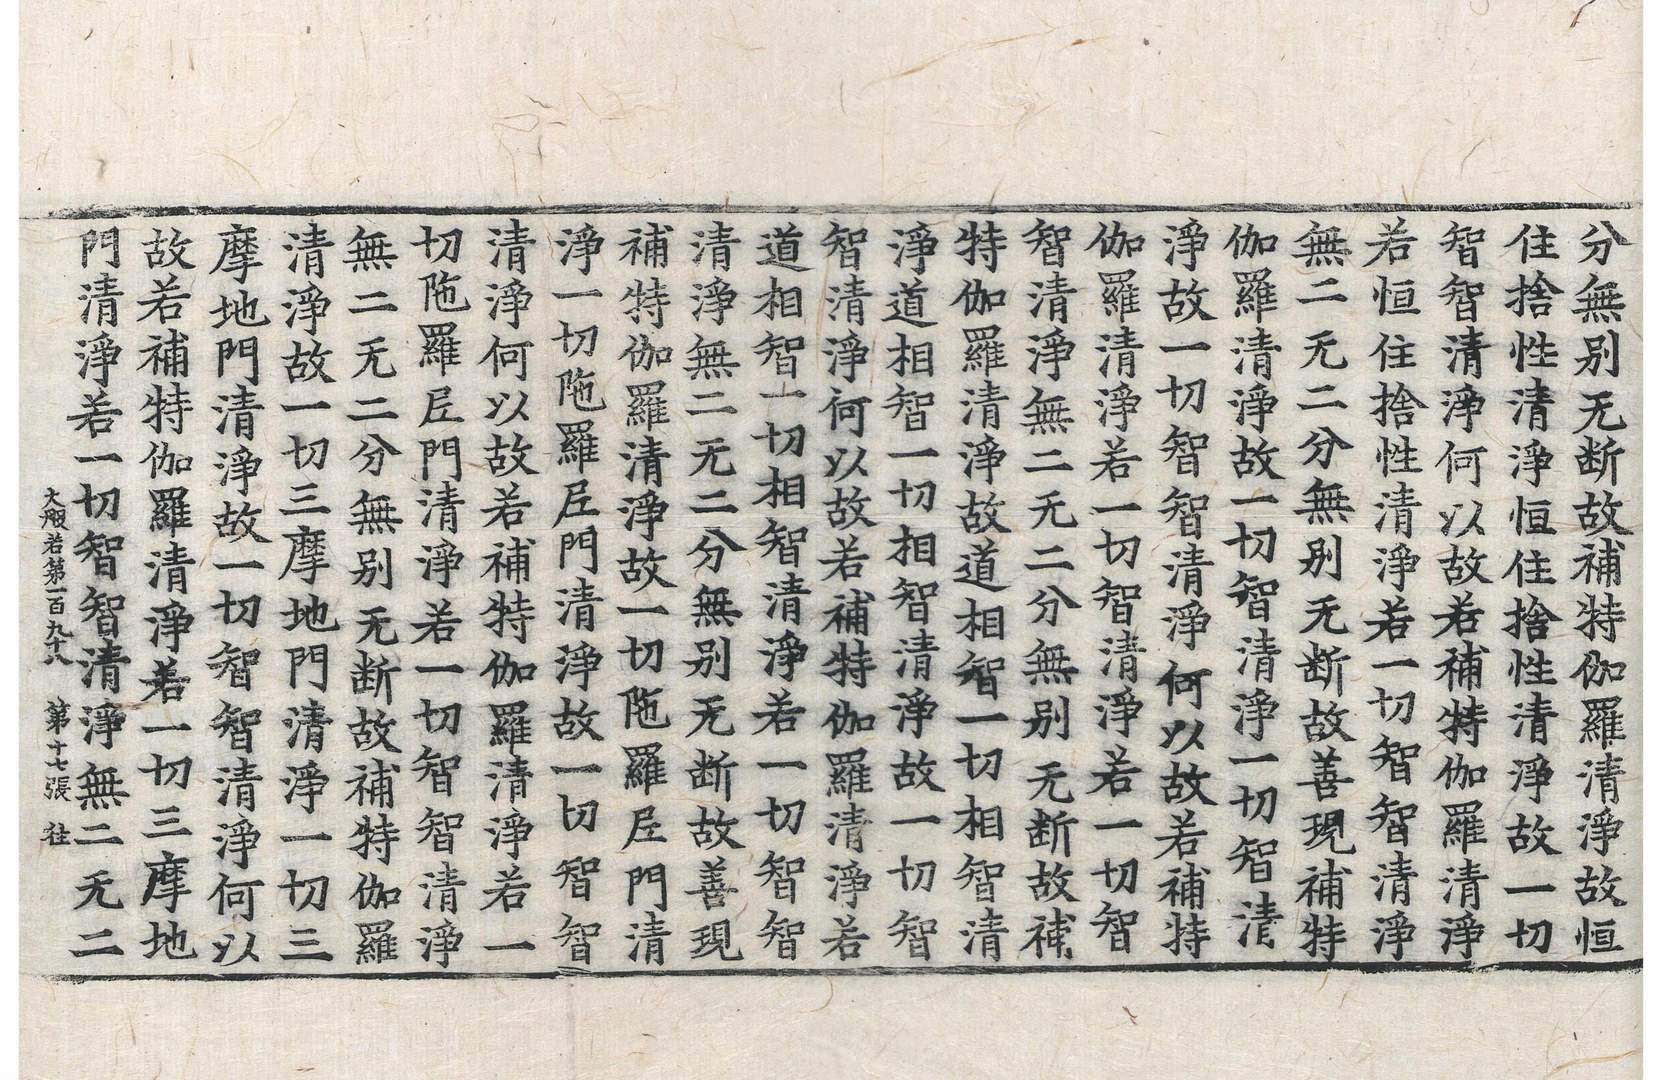 分無别无断故補特伽羅清淨故恒
住捨性清淨恒住捨性清淨故一切
智智清淨何以故若補特伽羅清淨
若恒住捨性清淨若一切智智清淨
無二无二分無别无断故善現補特
伽羅清淨故一切智清淨一切智清
淨故一切智智清淨何以故若補特
伽羅清淨若一切智清淨若一切智
智清淨無二无二分無别无断故補
特伽羅清淨故道相智一切相智清
淨道相智一切相智清淨故一切智
智清淨何以故若補特伽羅清淨若
道相智一切相智清淨若一切智智
清淨無二无二分無别无断故善現
補特伽羅清淨故一切陁羅尼門清
淨一切陁羅尼門清淨故一切智智
清淨何以故若補特伽羅清淨若一
切陁羅尼門清淨若一切智智清淨
無二无二分無别无断故補特伽羅
清淨故一切三摩地門清淨一切三
摩地門清淨故一切智智清淨何以
故若補特伽羅清淨若一切三摩地
門清淨若一切智智清淨無二无二
大般若第一百九十八 第十七張 往